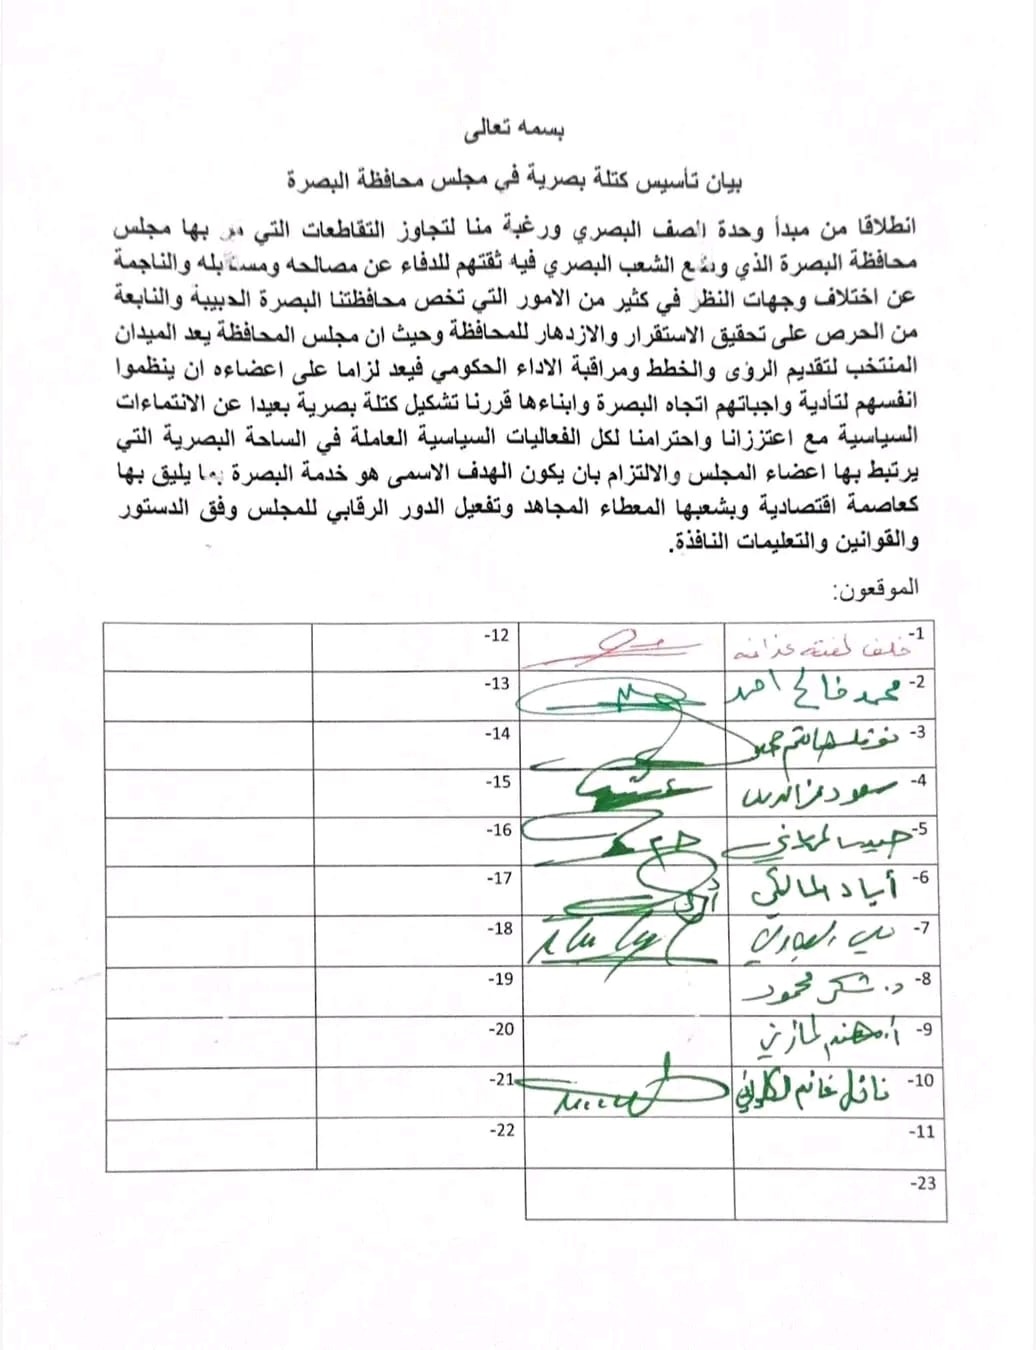 بسمه تعالى
بيان تأسيس كتلة بصرية في مجلس محافظة البصرة
انطلاقا من مبدأ وحدة الصف البصري ورغبة منا لتجاوز التقاطعات التي مر بها مجلس
محافظة البصرة الذي وضع الشعب البصري فيه ثقتهم للدفاع عن مصالحه ومستقبله والناجمة
عن اختلاف وجهات النظر في كثير من الامور التي تخص محافظتنا البصرة الحبيبة والنابعة
من الحرص على تحقيق الاستقرار والازدهار للمحافظة وحيث ان مجلس المحافظة يعد الميدان
المنتخب لتقديم الرؤى والخطط ومراقبة الاداء الحكومي فيعد لزاما على اعضاءه ان ينظموا
انفسهم لتأدية واجباتهم اتجاه البصرة وابناءها قررنا تشكيل كتلة بصرية بعيدا عن الانتماءات
السياسية مع اعتززانا واحترامنا لكل الفعاليات السياسية العاملة في الساحة البصرية التي
يرتبط بها اعضاء المجلس والالتزام بان يكون الهدف الاسمى هو خدمة البصرة بما يليق بها
كعاصمة اقتصادية وبشعبها المعطاء المجاهد وتفعيل الدور الرقابي للمجلس وفق الدستور
والقوانين والتعليمات النافذة.
الموقعون:
1- خلف لفتة
12-
2- محمد فالح احمد
13-
3- نوفل هاشم حميد
14-
4- سعود عزالدين
15-
5-
16-
6- أياد المالكي
17-
7-
18-
8- د. شكر محمود
19-
9- أ. مهند المازني
20-
10- نائل غانم
21-
11-
22-
23-